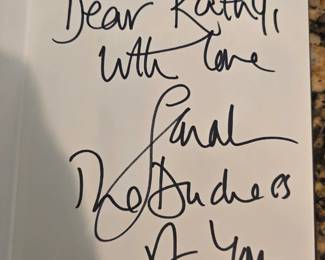 Dear Kathy,
With love
Sarah
The Duchess
of You